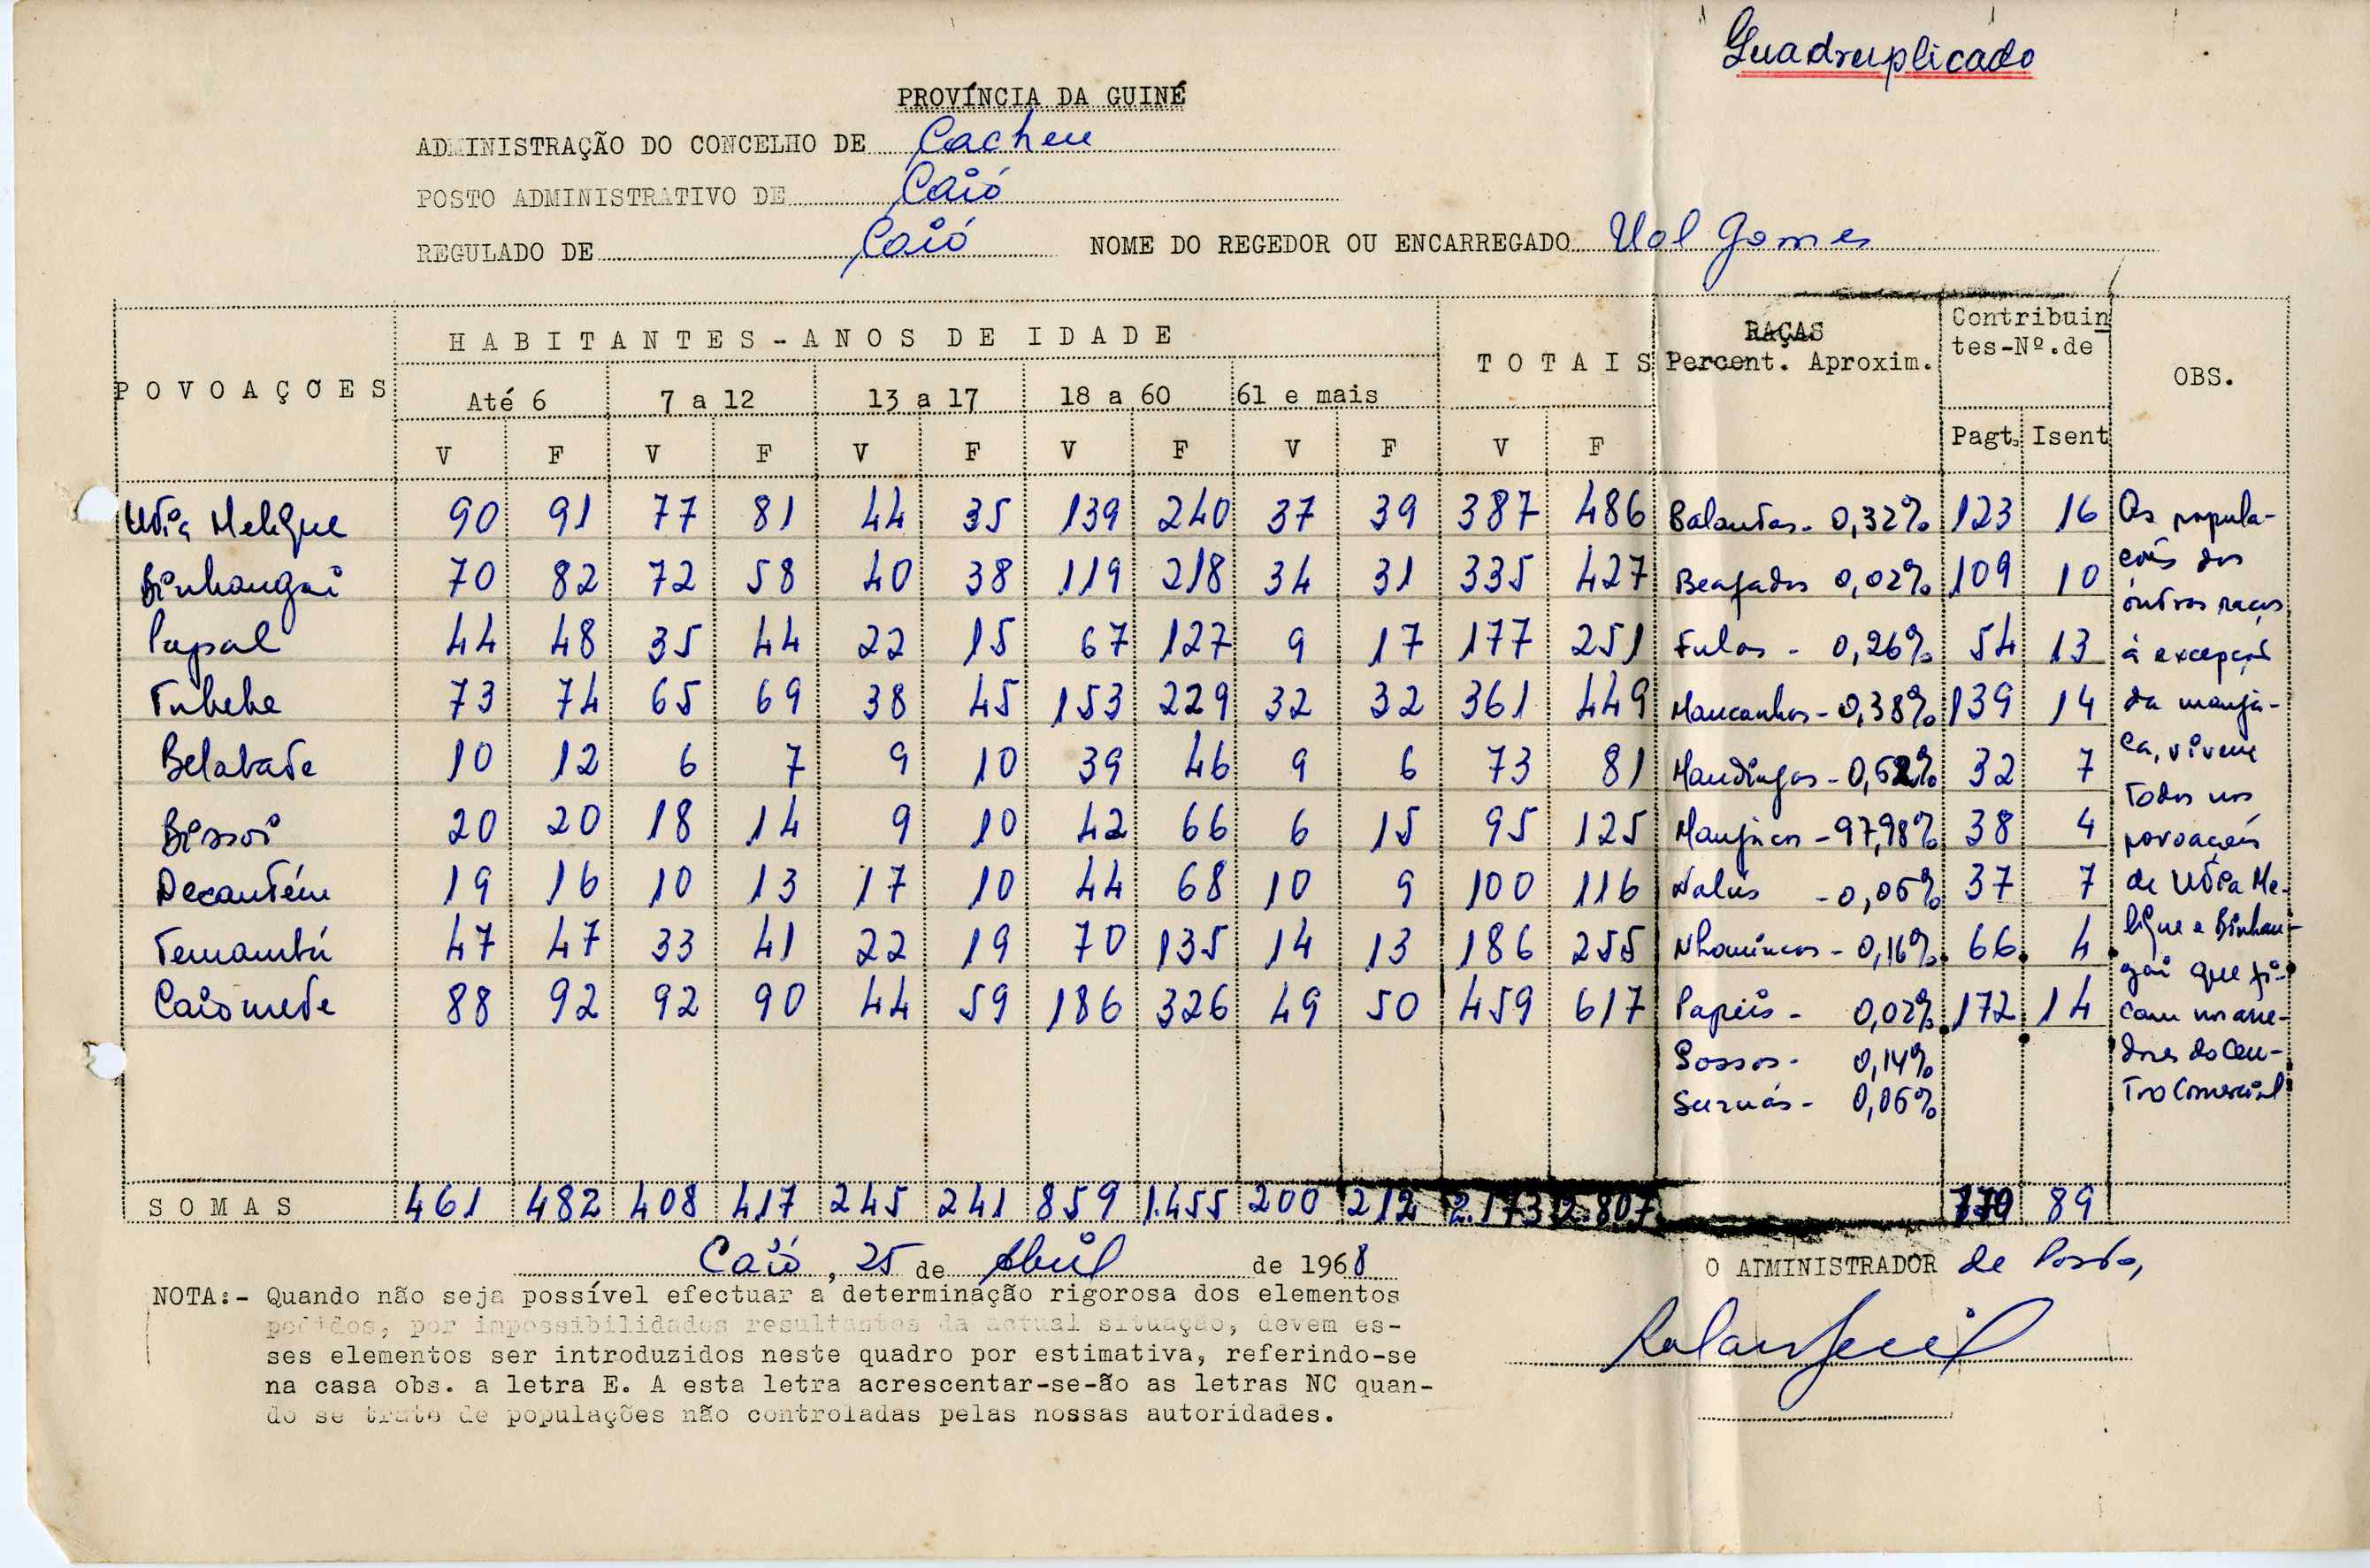 Quadruplicado
PROVÍNCIA DA GUINÉ
ADMINISTRAÇÃO DO CONCELHO DE Cacheu
POSTO ADMINISTRATIVO DE Caió
REGULADO DE Caió NOME DO REGEDOR OU ENCARREGADO Ual Gomes
POVOAÇÕES HABITANTES-ANOS DE IDADE TOTAIS RAÇAS Percent. Aproxim. Contribuin tes-Nº.de OBS.
Até 6 7 a 12 13 a 17 18 a 60 61 e mais
V F V F V F V F V F V F Pagt. Isent
Utia Meligue 90 91 77 81 44 35 139 240 37 39 387 486 Balantas - 0,32% 123 16
Binhangai 70 82 72 58 40 38 119 218 34 31 335 427 Beafadas 0,02% 109 10
Papal 44 48 35 44 22 15 67 127 9 17 177 251 Fulas - 0,26% 54 13
Tubebe 73 74 65 69 38 45 153 229 32 32 361 449 Mancanhas - 0,38% 139 14
Belabate 10 12 6 7 9 10 39 46 9 6 73 81 Mandingas - 0,62% 32 7
Bissoi 20 20 18 14 9 10 42 66 6 15 95 125 Manjacos - 97,98% 38 4
Decantém 19 16 10 13 17 10 44 68 10 9 100 116 Nalús - 0,06% 37 7
Temambú 47 47 33 41 22 19 70 135 14 13 186 255 Nhomincas - 0,16% 66 4
Caiomete 88 92 92 90 44 59 186 326 49 50 459 617 Papéis - 0,02% 172 14
Sossos - 0,14%
Suruás - 0,06%
As popula-
ções das
outras raças
à excepção
da manja-
ca, vivem
todas nas
povoações
de Utia Me-
ligue e Binhan-
gai que fi-
cam nos arre-
dores do Cen-
tro Comercial
SOMAS 461 482 408 417 245 241 859 1.455 200 212 2.173 2.807 89
Caió, 25 de Abril de 1968
O ADMINISTRADOR de Posto,
NOTA:- Quando não seja possível efectuar a determinação rigorosa dos elementos
pedidos, por impossibilidades resultantes da actual situação, devem es-
ses elementos ser introduzidos neste quadro por estimativa, referindo-se
na casa obs. a letra E. A esta letra acrescentar-se-ão as letras NC quan-
do se trate de populações não controladas pelas nossas autoridades.